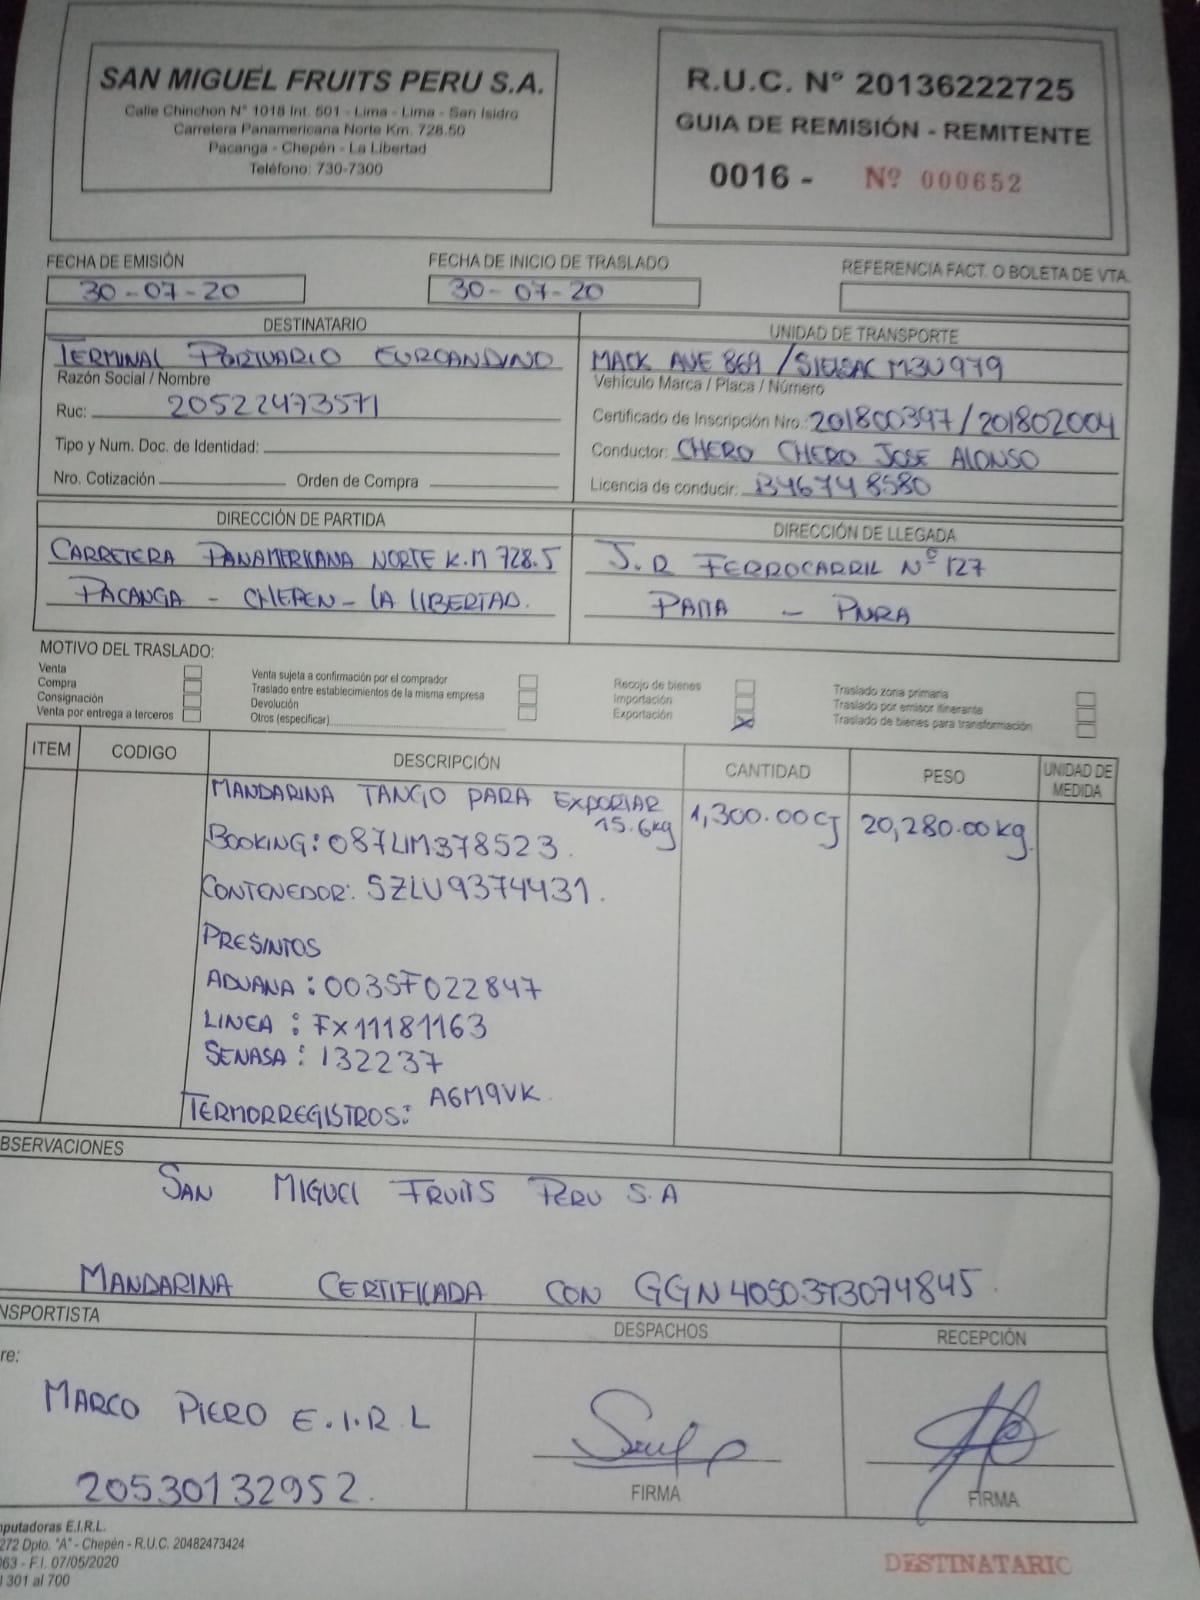 SAN MIGUEL FRUITS PERU S.A.
Calle Chinchon N° 1018 Int. 501 - Lima - Lima - San Isidro
Carretera Panamericana Norte Km. 728.50
Pacanga - Chepén - La Libertad
Teléfono: 730-7300
R.U.C. N° 20136222725
GUIA DE REMISIÓN - REMITENTE
0016 - Nº 000652
FECHA DE EMISIÓN
30-07-20
FECHA DE INICIO DE TRASLADO
30-07-20
REFERENCIA FACT. O BOLETA DE VTA.
DESTINATARIO
TERMINAL PORTUARIO EUROANDINO
Razón Social / Nombre
Ruc: 20522473571
Tipo y Num. Doc. de Identidad:
Nro. Cotización Orden de Compra
UNIDAD DE TRANSPORTE
MACK AVE 869 / SIELSAC M3U979
Vehículo Marca / Placa / Número
Certificado de Inscripción Nro.: 201800397/201802004
Conductor: CHERO CHERO JOSE ALONSO
Licencia de conducir: B46748580
DIRECCIÓN DE PARTIDA
CARRETERA PANAMERICANA NORTE K.M 728.5
PACANGA - CHEPEN - LA LIBERTAD.
DIRECCIÓN DE LLEGADA
J.R FERROCARRIL Nº 127
PAITA - PIURA
MOTIVO DEL TRASLADO:
Venta
Compra
Consignación
Venta por entrega a terceros
Venta sujeta a confirmación por el comprador
Traslado entre establecimientos de la misma empresa
Devolución
Otros (especificar)
Recojo de bienes
Importación
Exportación X
Traslado zona primaria
Traslado por emisor itinerante
Traslado de bienes para transformación
ITEM CODIGO DESCRIPCIÓN CANTIDAD PESO UNIDAD DE MEDIDA
MANDARINA TANGO PARA EXPORTAR 1,300.00CJ 20,280.00kg
15.6kg
BOOKING: 087LIM378523.
CONTENEDOR: SZLU9374431.
PRESINTOS
ADUANA: 003SF022847
LINEA: FX11181163
SENASA: 132237
TERMORREGISTROS: A6M9VK
BSERVACIONES
SAN MIGUEL FRUITS PERU S.A
MANDARINA CERTIFICADA CON GGN 4050373074845.
NSPORTISTA
re:
MARCO PIERO E.I.R.L
20530132952.
DESPACHOS
FIRMA
RECEPCIÓN
FIRMA
mputadoras E.I.R.L.
272 Dpto. "A" - Chepén - R.U.C. 20482473424
063 - F.I. 07/05/2020
l 301 al 700
DESTINATARIO